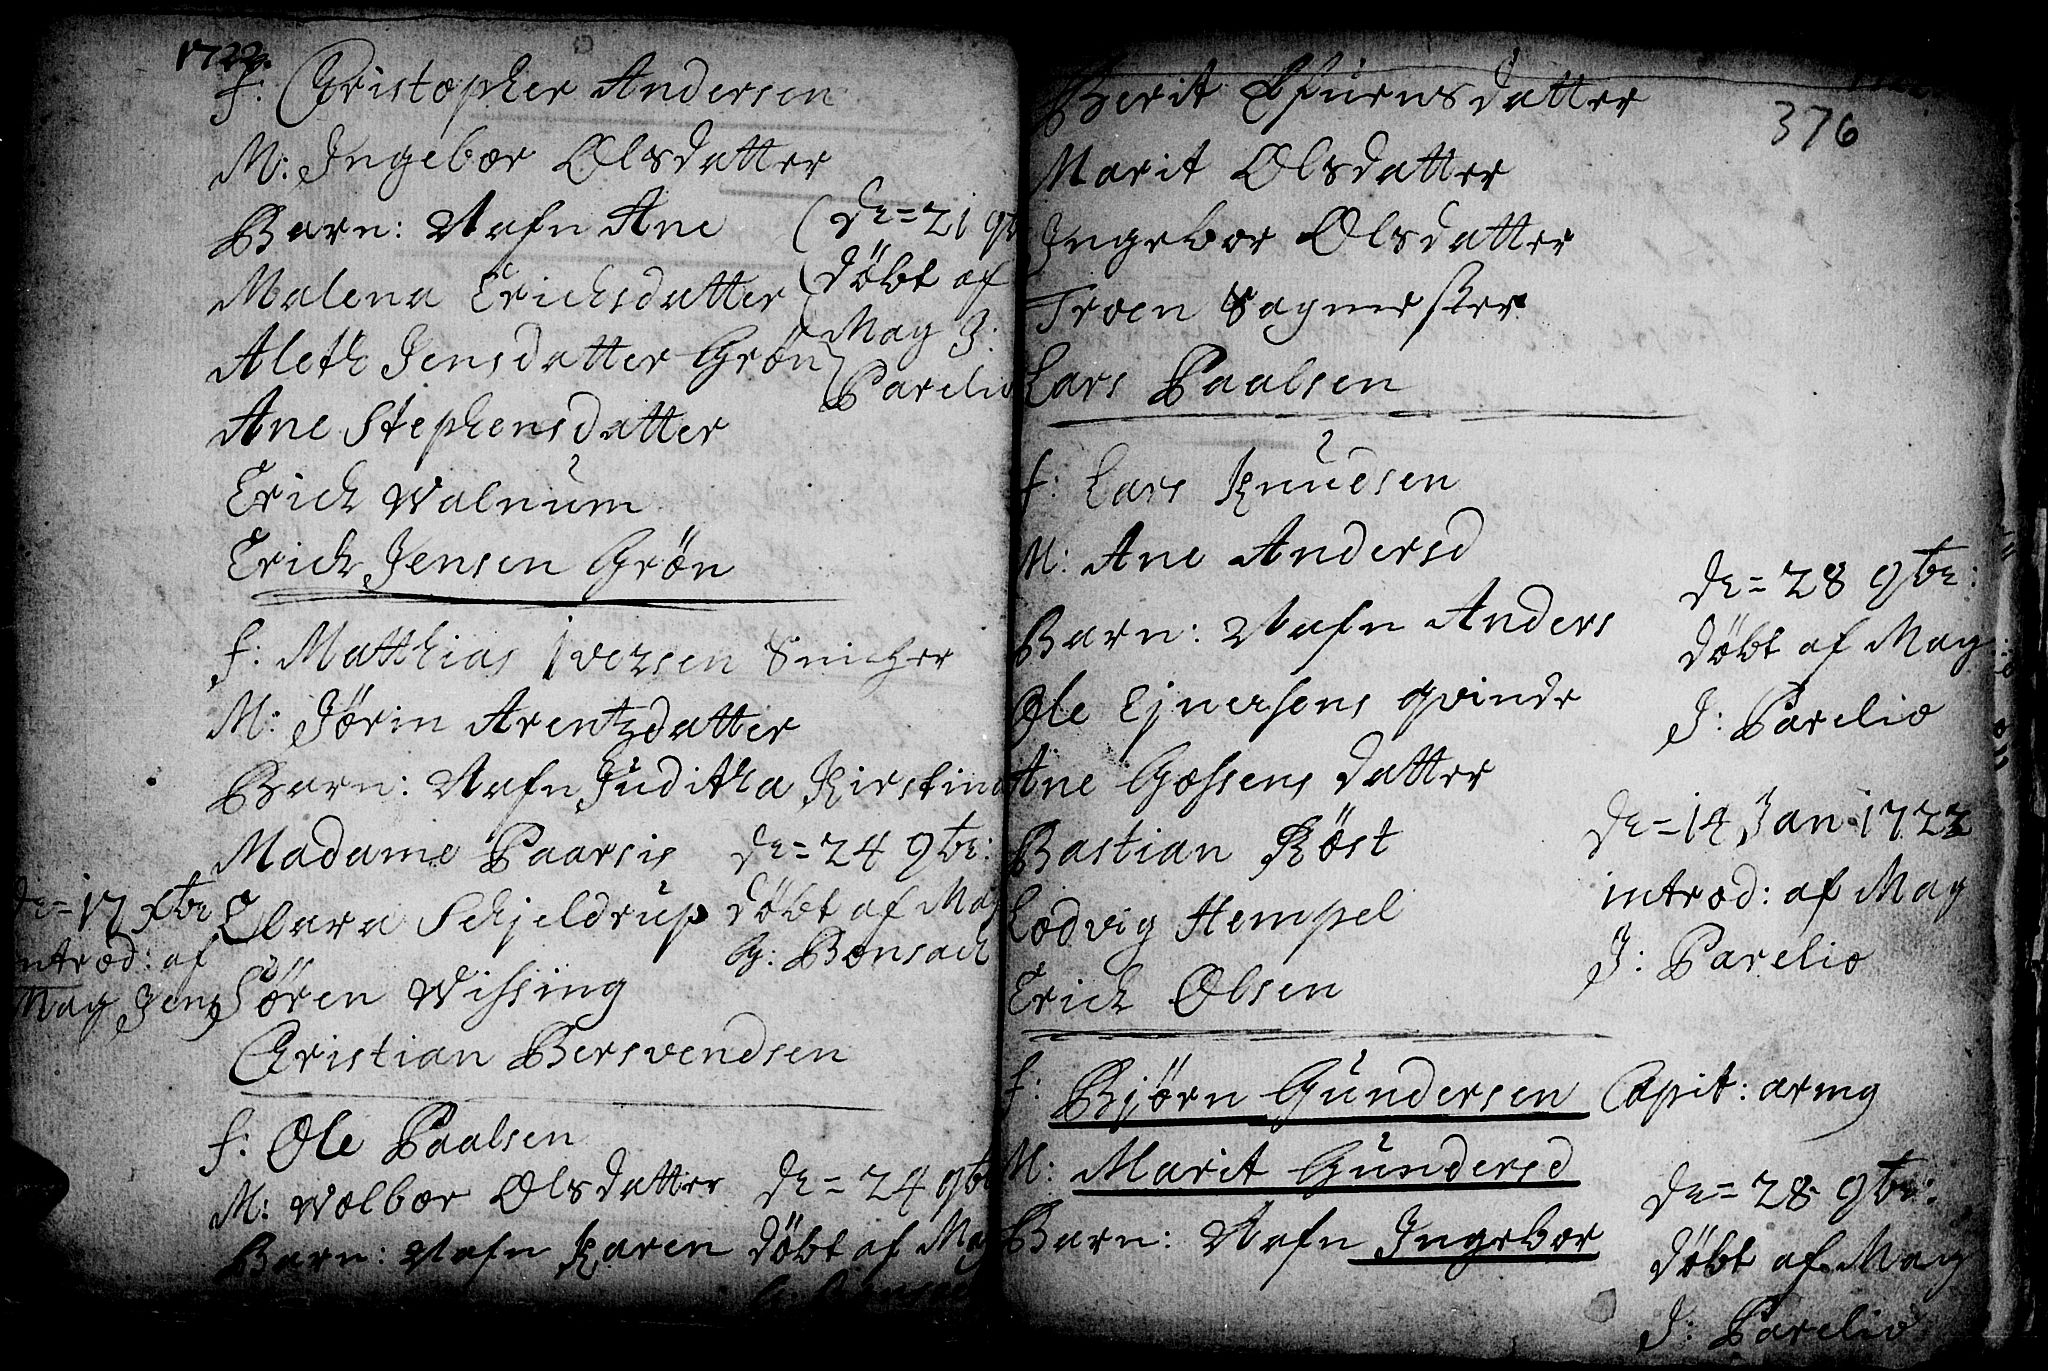 1722.
f: Christopher Andersen
M: Ingebor Olsdatter
Barn: Nafn Ane
Malena Erichsdatter
Aleth Jensdatter Grön
Ane Stephensdatter
Erich Walnum
Erich Jensen Grön
de = 21 9br
döbt af
Mag J:
Parelio
f: Matthias Iversen Snicher
M: Jörin Arentzdatter
Barn: Nafn Juditha Kirstina
Madame Paarsis
Clara Schjeldrup
Sören Wissing
Christian Bersvendsen
de = 24 9br:
döbt af Mag
G: Bonsach
de = 17 Xbr
introd: af
Mag Jens
f: Ole Paalsen
M: Wolbor Olsdatter
Barn: Nafn Karen
de = 24 9br
döbt af Mag
G: Bonsach
376
Berit Datter
Marit Olsdatter
Ingebor Olsdatter
Troen Sagmester
Lars Paalsen
f: Lars Knudsen
M: Ane Andersd
Barn: Nafn Anders
Ole Ejnersens qvinde
Ane Gossens datter
Bastian Röst
Lodvig Hempel
Erich Olsen
de = 28 9br:
döbt af Mag
J: Parelio
de = 14 Jan 1722
introd: af Mag
J: Parelio
f: Bjørn Gundersen Capit: army
M: Marit Gundersd
Barn: Nafn Ingebor
de = 28 9br:
döbt af Mag
J: Parelio